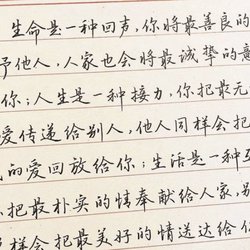 生命是一种回声，你将最善良的
予他人，人家也会将最诚挚的意
你；人生是一种接力，你把最无
爱传递给别人，他人同样会把
的爱回放给你；生活是一种互
把最朴实的情奉献给人家，别
样会把最美好的情送达给你